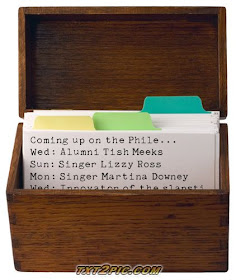 Coming up on the Phile...
Wed: Alumni Tish Meeks
Sun: Singer Lizzy Ross
Mon: Singer Martina Downey
Wed: Innovator of the slapsti
TXT2PIC.COM